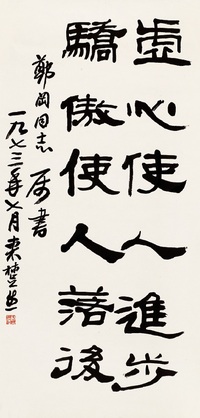 虚心使人進步
驕傲使人落後
鄭岡同志 属書
一九七三年七月 来楚生